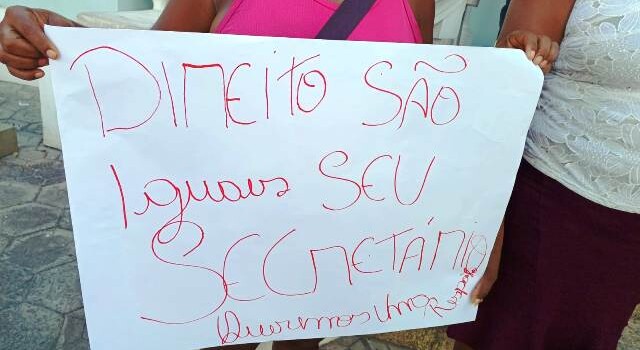 DIREITO SÃO
Iguais SEU
SECRETÁRIO
Queremos Uma